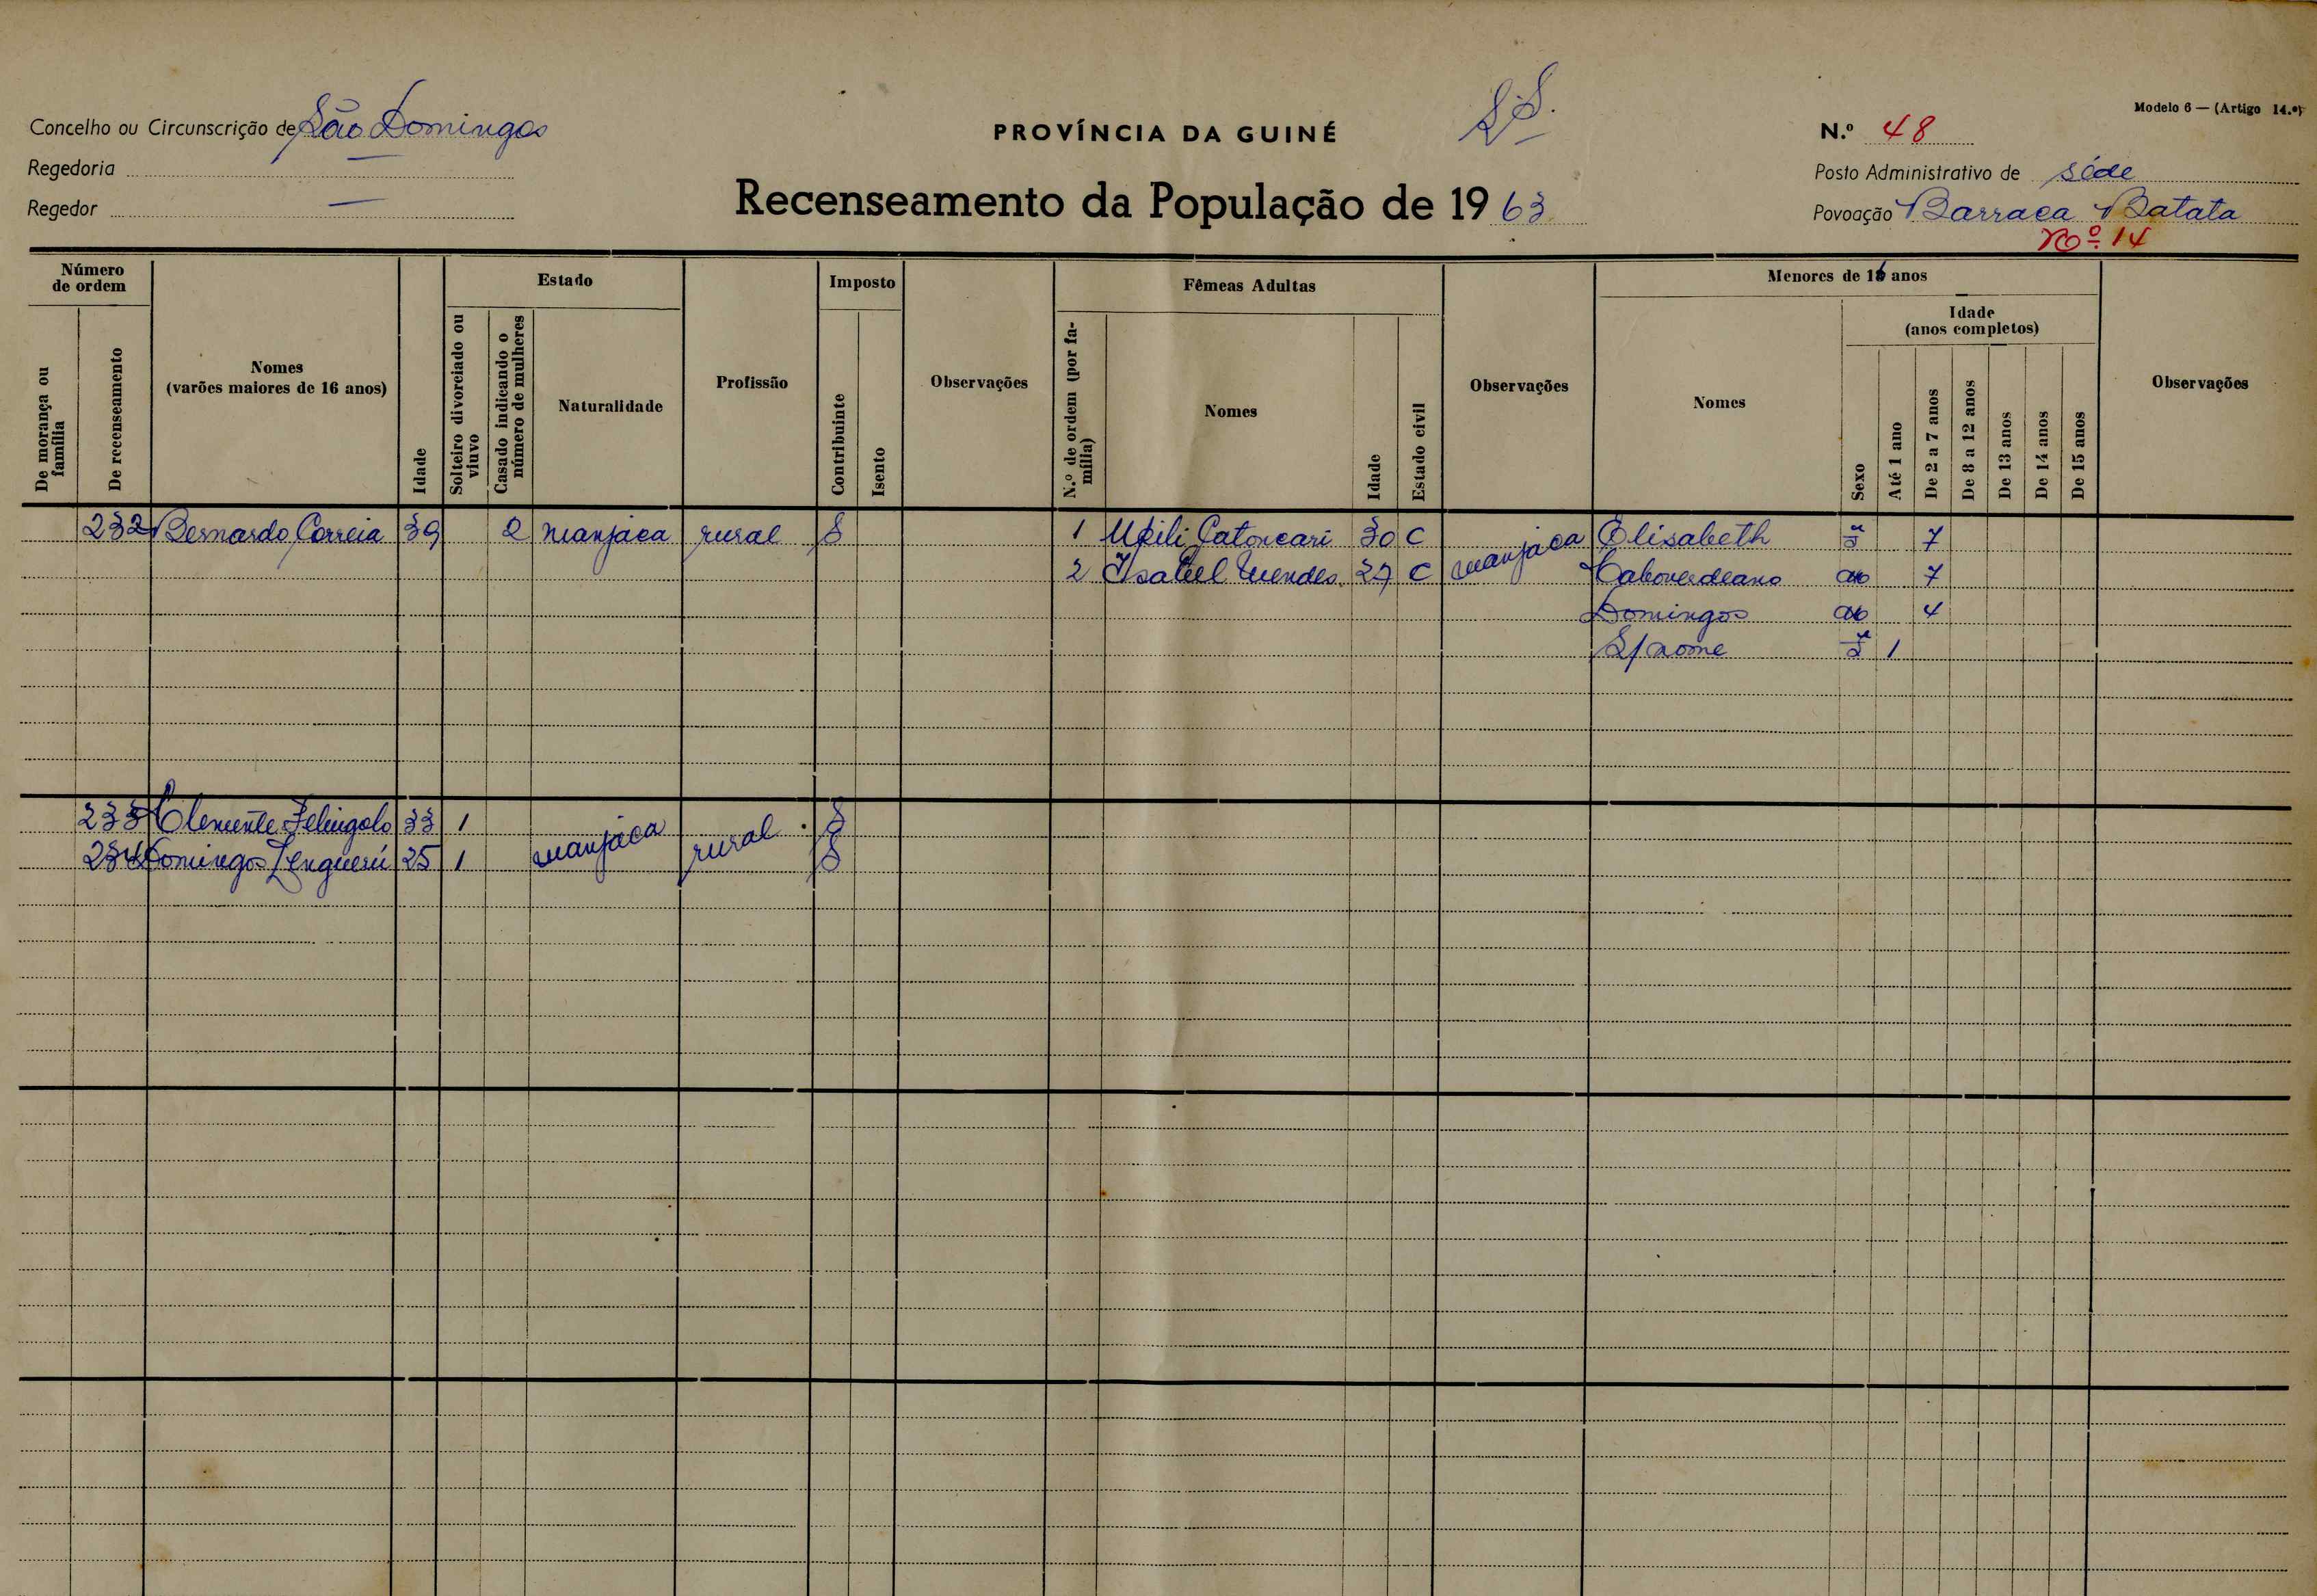 Modelo 6 — (Artigo 14.º)
Concelho ou Circunscrição de São Domingos
PROVÍNCIA DA GUINÉ
N.º 48
Regedoria —
Posto Administrativo de séde
Regedor —
Recenseamento da População de 19 63
Povoação Barraca Batata
Nº 14
Número de ordem
De morança ou família
De recenseamento
Nomes
(varões maiores de 16 anos)
Idade
Estado
Solteiro divorciado ou viuvo
Casado indicando o número de mulheres
Naturalidade
Profissão
Imposto
Contribuinte
Isento
Observações
Fêmeas Adultas
N.º de ordem (por família)
Nomes
Idade
Estado civil
Observações
Menores de 16 anos
Nomes
Sexo
Idade
(anos completos)
Até 1 ano
De 2 a 7 anos
De 8 a 12 anos
De 13 anos
De 14 anos
De 15 anos
Observações
232 Bernardo Correia 39 2 manjaca rural S 1 Catoncari 30 C manjaca Elisabeth 7
2 Isabel Mendes 27 C Caboverdeano 7
Domingos 4
S/nome 1
233 Clemente 33 1 manjaca rural S
234 Domingos 25 1 S